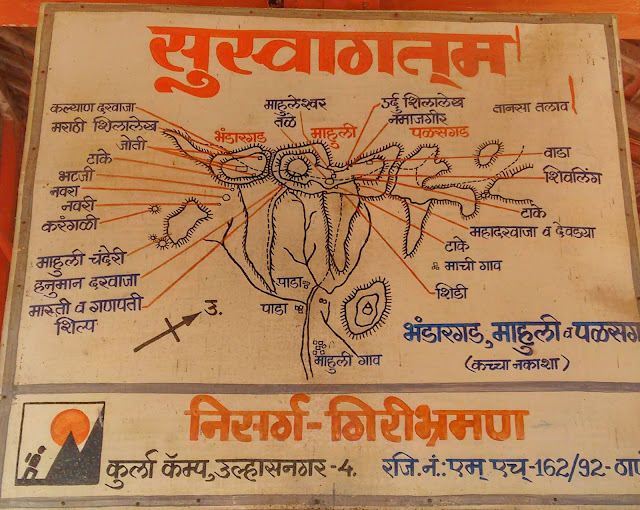 सुस्वागतम
कल्याण दरवाजा
मराठी शिलालेख
जोती
टाके
भटजी
नवरा
नवरी
करंगळी
माहुली चंदेरी
हनुमान दरवाजा
मारुती व गणपती
शिल्प
भंडारगड
माहुलेश्वर
तळे
माहुली
उर्दु शिलालेख
नमाजगीर
पळसगड
तानसा तलाव
वाडा
शिवलिंग
टाके
महादरवाजा व देवड्या
टाके
माची गाव
शिडी
पाडा
पाडा
माहुली गाव
उ.
भंडारगड, माहुली व पळसग
(कच्चा नकाशा)
निसर्ग-गिरीभ्रमण
कुर्ला कॅम्प, उल्हासनगर-4. रजि.नं.:एम् एच्-162/92-ठाणे